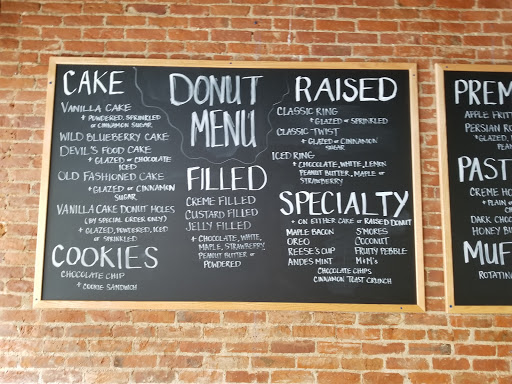 CAKE
VANILLA CAKE
+ POWDERED, SPRINKLED
or CINNAMON SUGAR
WILD BLUEBERRY CAKE
DEVIL'S FOOD CAKE
+ GLAZED or CHOCOLATE
ICED
OLD FASHIONED CAKE
+ GLAZED or CINNAMON
SUGAR
VANILLA CAKE DONUT HOLES
(BY SPECIAL ORDER ONLY)
+ GLAZED, POWDERED, ICED
or SPRINKLED
COOKIES
CHOCOLATE CHIP
+ COOKIE SANDWICH
DONUT
MENU
FILLED
CREME FILLED
CUSTARD FILLED
JELLY FILLED
+ CHOCOLATE, WHITE,
MAPLE, STRAWBERRY,
PEANUT BUTTER or
POWDERED
RAISED
CLASSIC RING
+ GLAZED or SPRINKLED
CLASSIC TWIST
+ GLAZED or CINNAMON
SUGAR
ICED RING
+ CHOCOLATE, WHITE, LEMON
PEANUT BUTTER, MAPLE or
STRAWBERRY
SPECIALTY
+ ON EITHER CAKE or RAISED DONUT
MAPLE BACON S'MORES
OREO COCONUT
REESE'S CUP FRUITY PEBBLE
ANDES MINT M&M's
CHOCOLATE CHIPS
CINNAMON TOAST CRUNCH
PREM
APPLE FRITT
PERSIAN RO
+ GLAZED,
PEAN
PAST
CREME HO
+ PLAIN or
DARK CHOC
HONEY BI
MUF
ROTATIN